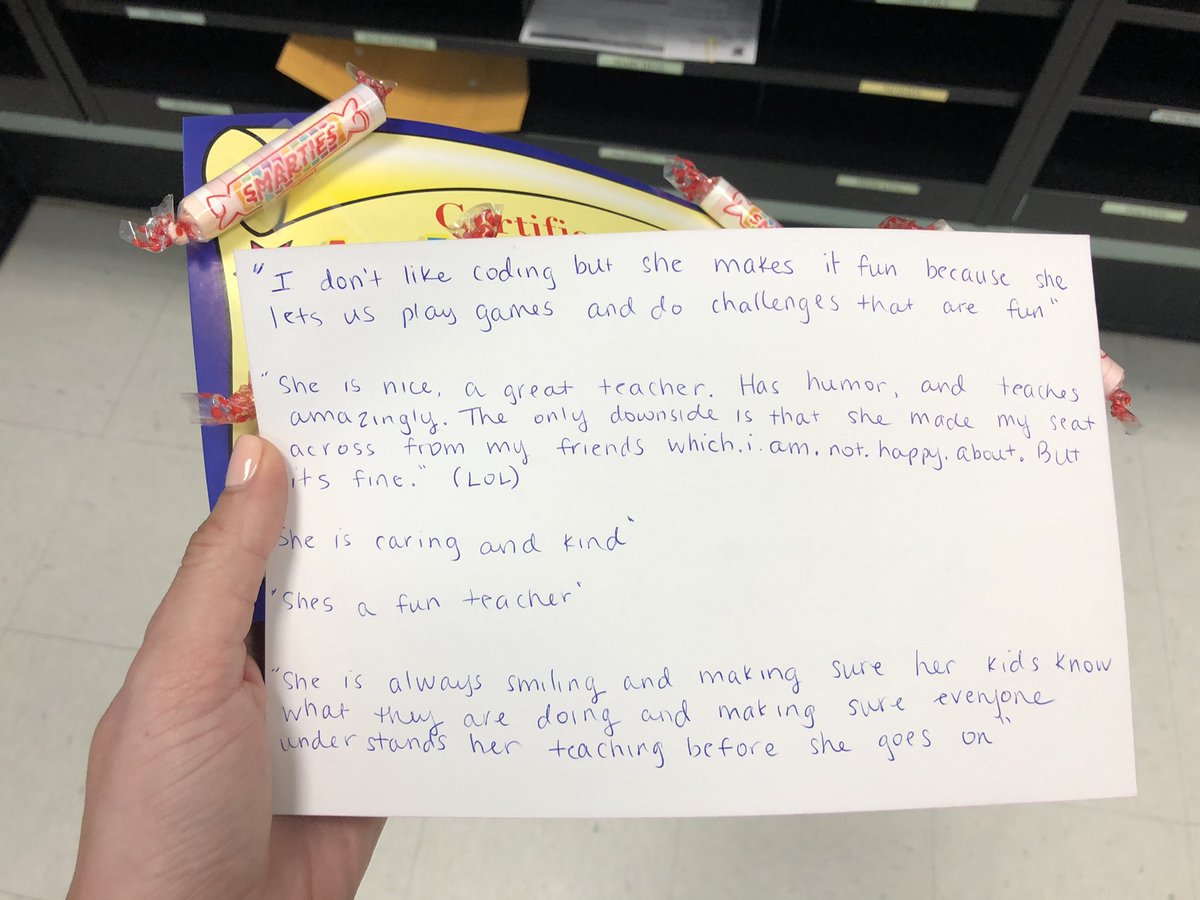 SMARTIES
Certific
"I don't like coding but she makes it fun because she
lets us play games and do challenges that are fun"
"She is nice, a great teacher. Has humor, and teaches
amazingly. The only downside is that she made my seat
across from my friends which.i.am.not.happy.about. But
its fine." (LOL)
She is caring and kind"
"Shes a fun teacher"
"She is always smiling and making sure her kids know
what they are doing and making sure everyone
understands her teaching before she goes on"